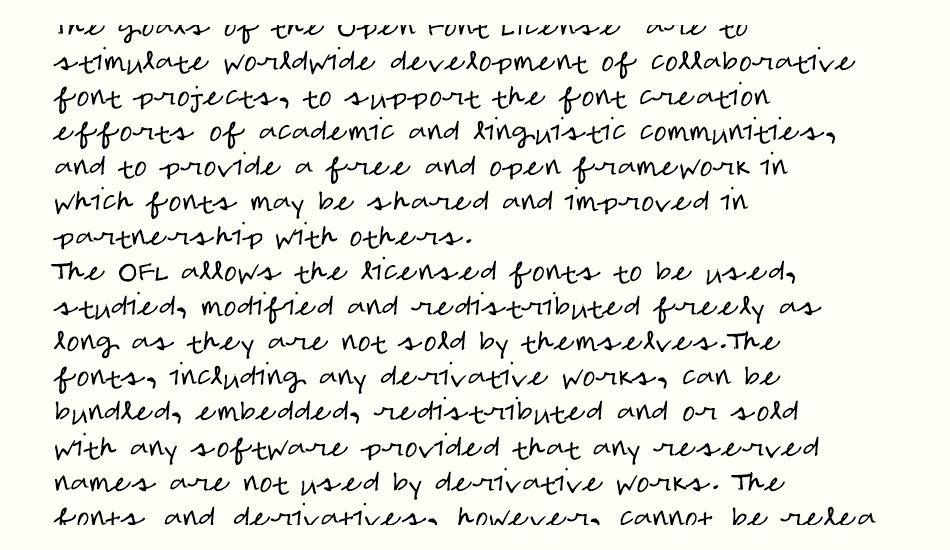 The goals of the Open Font License are to
stimulate worldwide development of collaborative
font projects, to support the font creation
efforts of academic and linguistic communities,
and to provide a free and open framework in
which fonts may be shared and improved in
partnership with others.
The OFL allows the licensed fonts to be used,
studied, modified and redistributed freely as
long as they are not sold by themselves.The
fonts, including any derivative works, can be
bundled, embedded, redistributed and or sold
with any software provided that any reserved
names are not used by derivative works. The
fonts and derivatives, however, cannot be relea